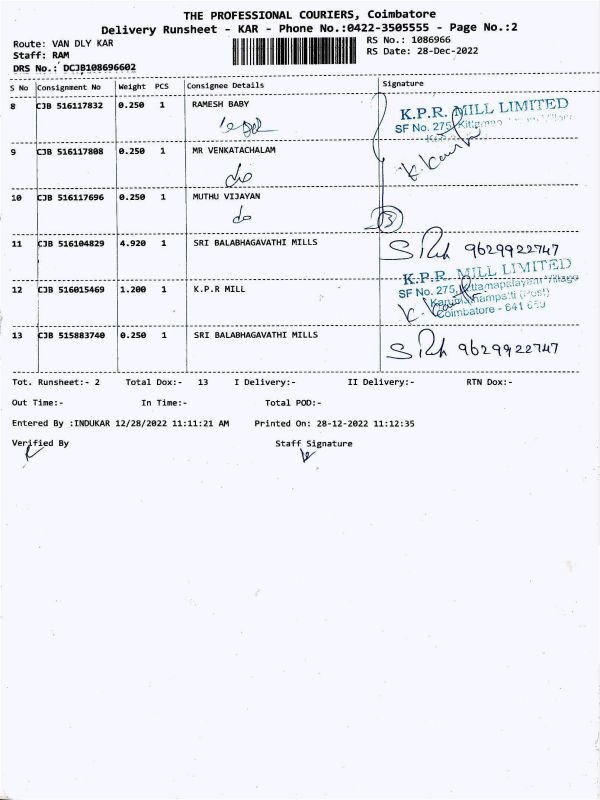 THE PROFESSIONAL COURIERS, Coimbatore
Delivery Runsheet - KAR - Phone No.:0422-3505555 - Page No.:2
Route: VAN DLY KAR
Staff: RAM
DRS No.: DCJB108696602
RS No.: 1086966
RS Date: 28-Dec-2022
S No Consignment No Weight PCS Consignee Details Signature
8 CJB 516117832 0.250 1 RAMESH BABY
K.P.R. MILL LIMITED
SF No. 275,
9 CJB 516117808 0.250 1 MR VENKATACHALAM
do
10 CJB 516117696 0.250 1 MUTHU VIJAYAN
do
11 CJB 516104829 4.920 1 SRI BALABHAGAVATHI MILLS
9629922747
12 CJB 516015469 1.200 1 K.P.R MILL
K.P.R. MILL LIMITED
SF No. 275, Kittamapalayam Village
Karumathampatti (Post)
Coimbatore - 641 659
13 CJB 515883740 0.250 1 SRI BALABHAGAVATHI MILLS
9629922747
Tot. Runsheet:- 2 Total Dox:- 13 I Delivery:- II Delivery:- RTN Dox:-
Out Time:- In Time:- Total POD:-
Entered By :INDUKAR 12/28/2022 11:11:21 AM Printed On: 28-12-2022 11:12:35
Verified By Staff Signature